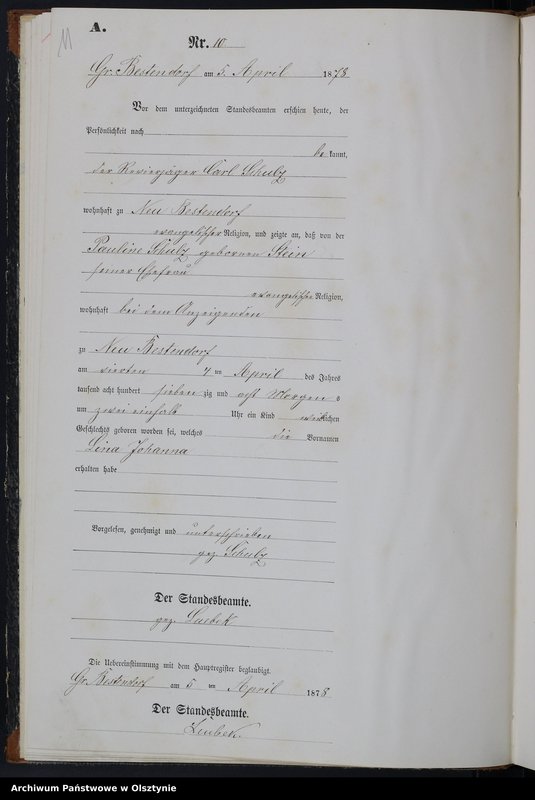 11
A.
Nr. 10
Gr. Bestendorf am 5. April 1878
Vor dem unterzeichneten Standesbeamten erschien heute, der
Persönlichkeit nach
be kannt,
der Revierjäger Carl Schulz
wohnhaft zu Neu Bestendorf
evangelischer Religion, und zeigte an, daß von der
Pauline Schulz geborenen Stein
seiner Ehefrau
evangelischer Religion,
wohnhaft bei dem Anzeigenden
zu Neu Bestendorf
am vierten April des Jahres
tausend acht hundert sieben zig und acht Morgen s
um zwei einhalb Uhr ein Kind weiblichen
Geschlechts geboren worden sei, welches die Vornamen
Lina Johanna
erhalten habe
Vorgelesen, genehmigt und unterschrieben
gez. Schulz
Der Standesbeamte.
gez. Luebek
Die Uebereinstimmung mit dem Hauptregister beglaubigt.
Gr. Bestendorf am 5 ten April 1878
Der Standesbeamte.
Luebek.
Archiwum Państwowe w Olsztynie